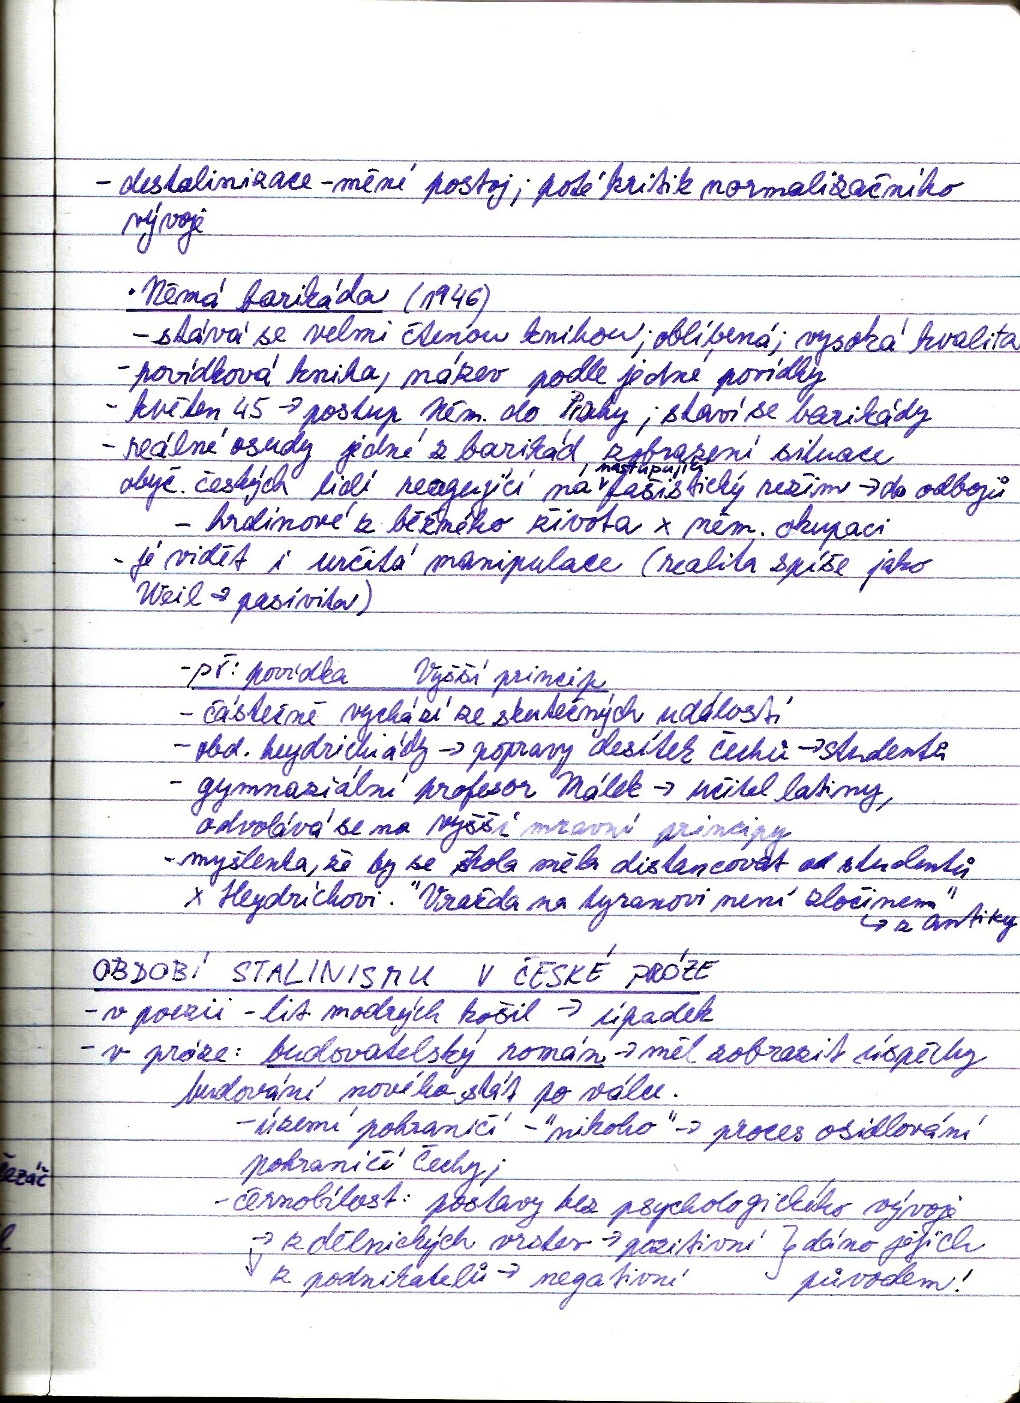 - destalinizace - mění postoj; poté kritik normalizačního
vývoje
• Němá barikáda (1946)
- stává se velmi čtenou knihou; oblíbená; vysoká kvalita
- povídková kniha, název podle jedné povídky
- květen 45 → postup Něm. do Prahy; staví se barikády
- reálné osudy jedné z barikád zobrazení situace
nastupující
obyč. českých lidí reagující na fašistický režim → do odbojů
- hrdinové z běžného života x něm. okupaci
- je vidět i určitá manipulace (realita spíše jako
Weil → pasivita)
- př: povídka Vyšší princip
- částečně vychází ze skutečných událostí
- obd. heydrichiády → popravy desítek Čechů → studentů
- gymnaziální profesor Málek → učitel latiny,
odvolává se na vyšší mravní principy
- myšlenka, že by se škola měla distancovat od studentů
x Heydrichovi. "Vražda na tyranovi není zločinem"
↳ z antiky
OBDOBÍ STALINISMU V ČESKÉ PRÓZE
- v poezii - lit modrých košil → úpadek
- v próze: budovatelský román → měl zobrazit úspěchy
budování nového stát po válce.
- území pohraničí - "nikoho" → proces osidlování
pohraničí Čechy;
řezáč
- černobílost: postavy bez psychologického vývoje
l
→ z dělnických vrstev → pozitivní } dáno jejich
↓ z podnikatelů → negativní původem!